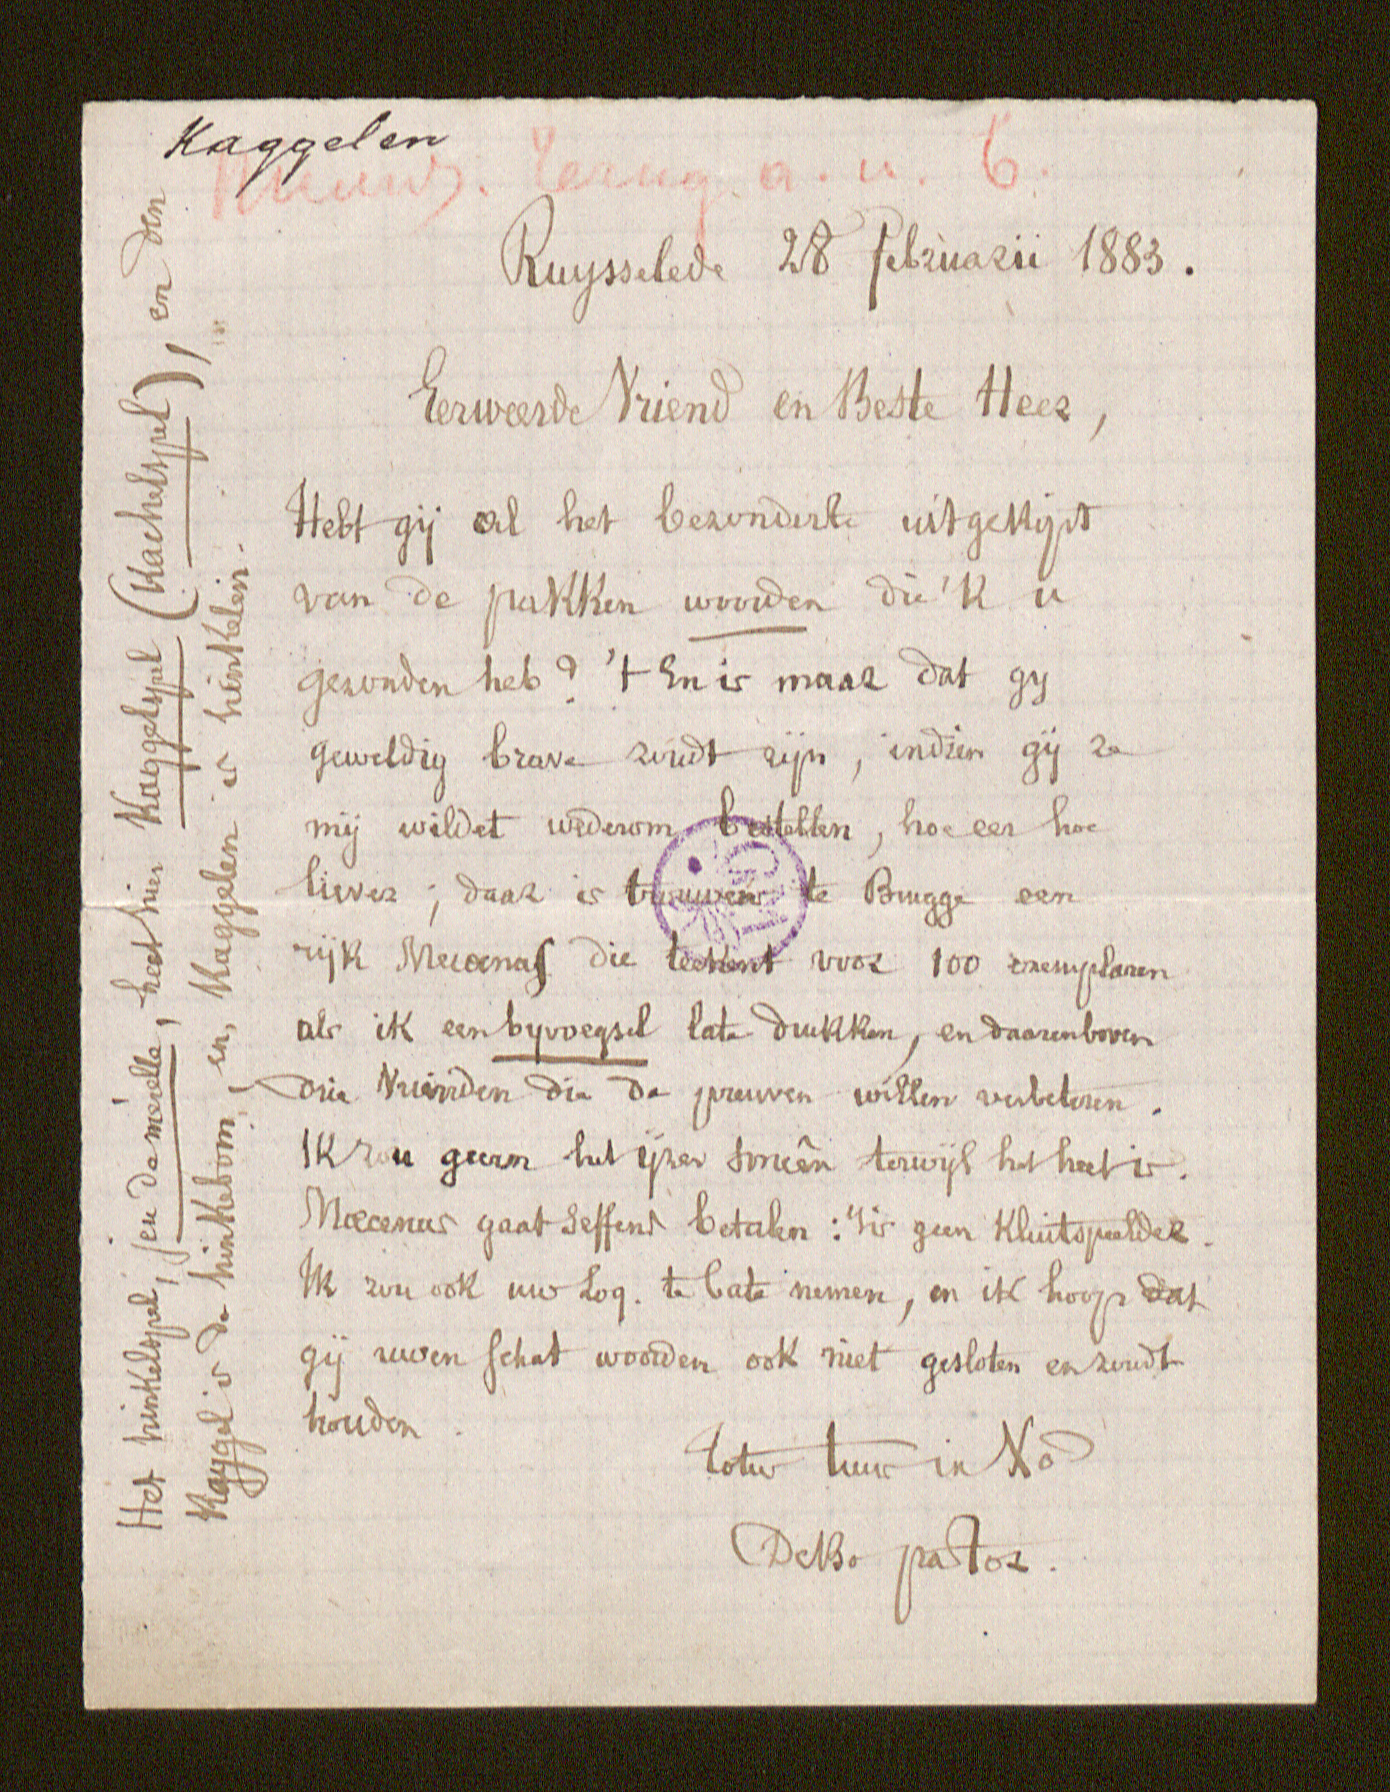 Kaggelen
terug. a. u. b.
Ruysselede 28 februarii 1883.
Eerweerde Vriend en Beste Heer,
Hebt gij al het bezonderste uitgekipt
van de pakken woorden die 'k u
gezonden heb? 't En is maar dat gy
geweldig brave zoudt zijn, indien gij ze
mij wildet wederom bestellen, hoe eer hoe
liever; daar is trouwens te Brugge een
rijk Mecenas die teekent voor 100 exemplaren
als ik een byvoegsel late drukken, en daarenboven
drie Vrienden die de preuven willen verbeteren.
Ik zou geern het ijzer smeên terwijl het heet is.
Mecenas gaat seffens betalen: 't is geen Kluitspaelder.
Ik zou ook uw Loq. te bate nemen, en ik hoope dat
gij uwen schat woorden ook niet gesloten en zoudt
houden.
Totus tuus in Xo
DeBo pastor.
Het hinkelspel, jeu de mérelle, heet hier Kaggelspel (Kachelspel), en den
Kaggel is de hinkeboom, en, Kaggelen is hinkelen.